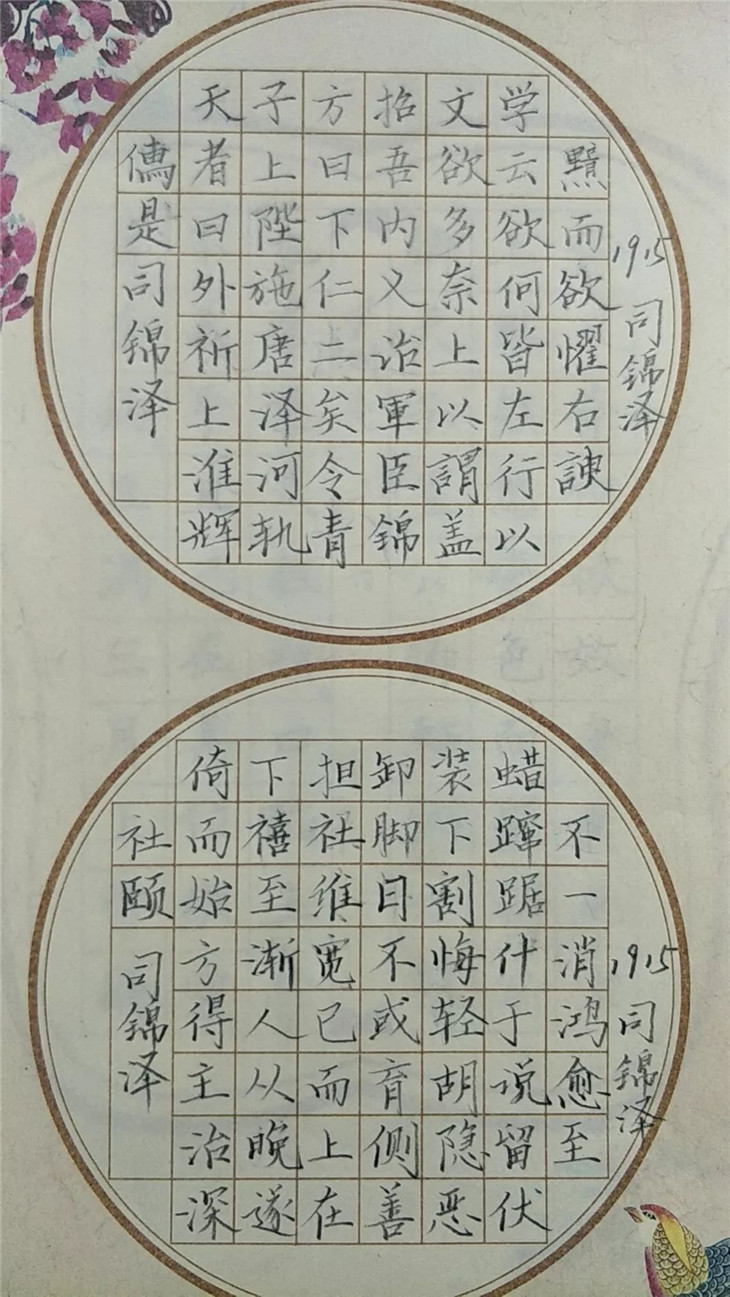 天子方招文学
儁者上曰吾欲云黯
是曰陛下内多欲而
外施仁义奈何欲
祈唐二治上皆懼
上泽矣軍以左右
淮河令臣謂行諛
辉轨青锦盖以
司锦泽
1915
司锦泽
倚下担卸装蜡
社而禧社脚下蹿不
颐始至维日割踞一
方渐宽不悔什消
得人已或轻于鸿
主从而育胡说愈
治晚上侧隐留至
深遂在善恶伏
司锦泽
1915
司锦泽